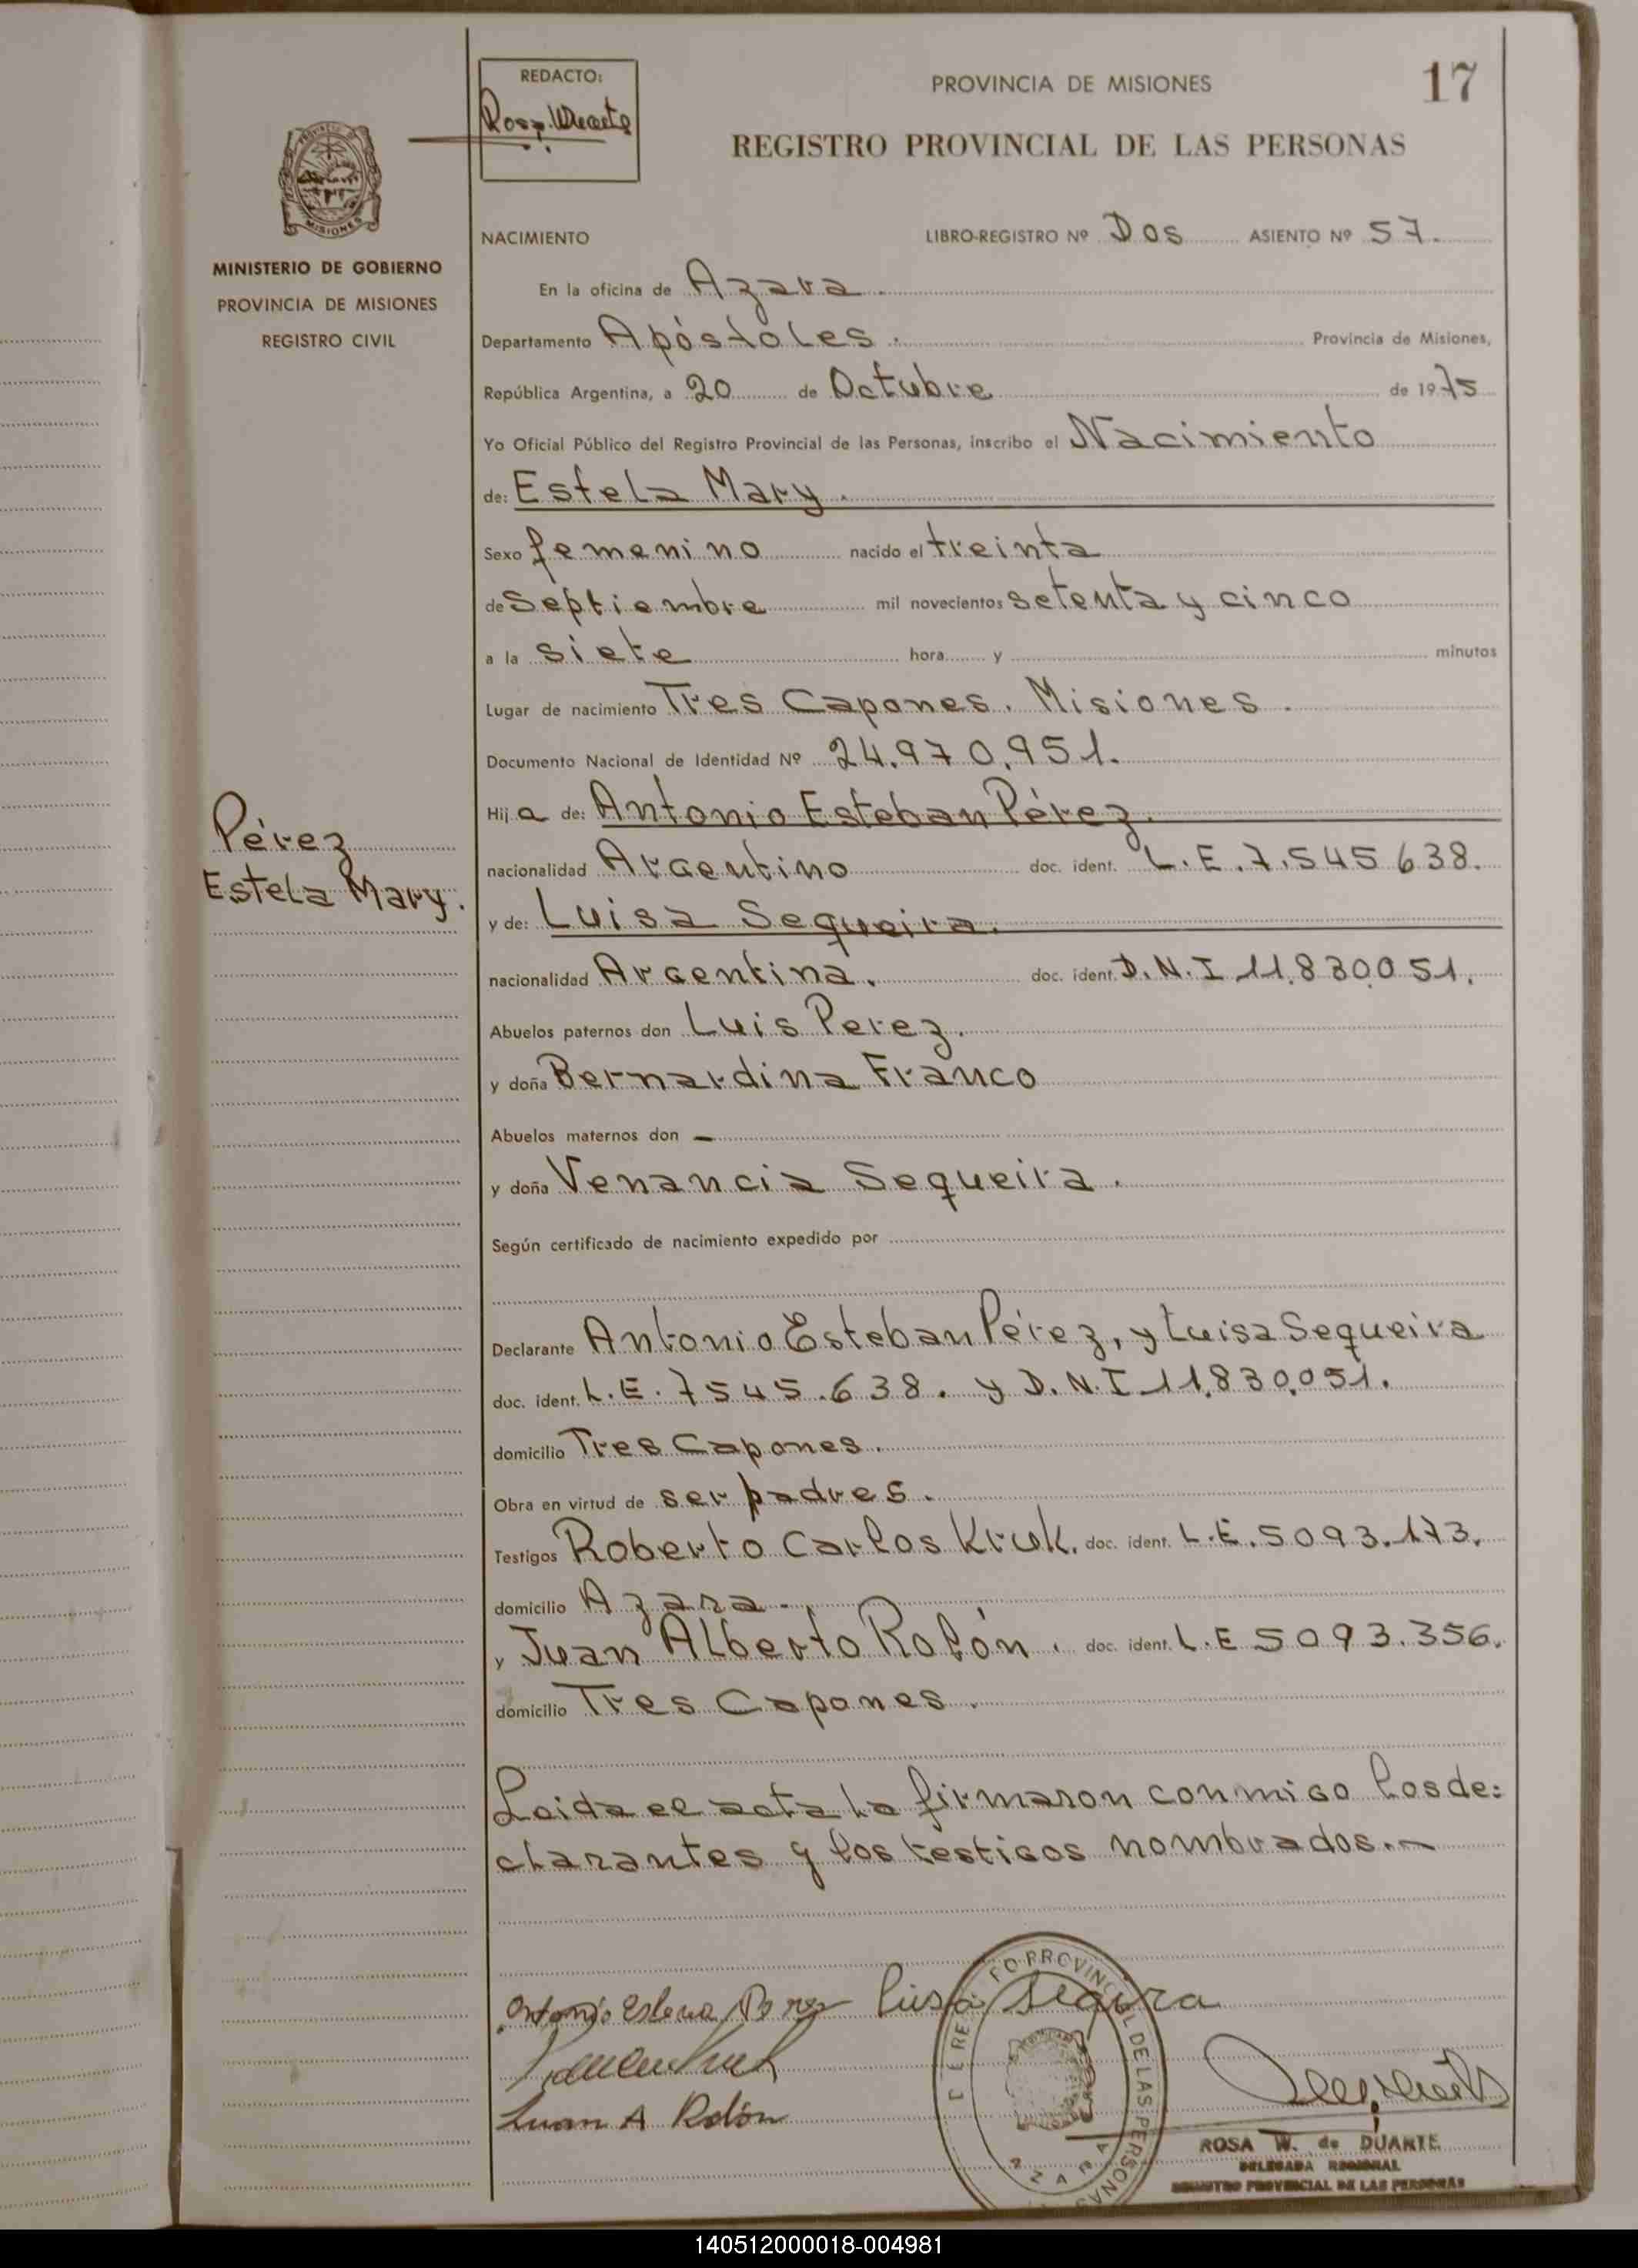 REDACTO:
Rosa W. Duarte
PROVINCIA DE MISIONES
17
REGISTRO PROVINCIAL DE LAS PERSONAS
MISIONES
MINISTERIO DE GOBIERNO
PROVINCIA DE MISIONES
REGISTRO CIVIL
NACIMIENTO LIBRO-REGISTRO Nº Dos ASIENTO Nº 57.
En la oficina de Azara.
Departamento Apóstoles. Provincia de Misiones,
República Argentina, a 20 de Octubre de 1975
Yo Oficial Público del Registro Provincial de las Personas, inscribo el Nacimiento
de: Estela Mary.
Sexo femenino nacido el treinta
de Septiembre mil novecientos setenta y cinco
a la siete hora y minutos
Lugar de nacimiento Tres Capones. Misiones.
Documento Nacional de Identidad Nº 24.970.951.
Hija de: Antonio Esteban Pérez.
Pérez
Estela Mary.
nacionalidad Argentino doc. ident. L.E. 7.545638.
y de: Luisa Sequeira.
nacionalidad Argentina. doc. ident. D.N.I 11.830.051.
Abuelos paternos don Luis Perez.
y doña Bernardina Franco
Abuelos maternos don –
y doña Venancia Sequeira.
Según certificado de nacimiento expedido por
Declarante Antonio Esteban Pérez, y Luisa Sequeira
doc. ident. L.E. 7545.638. y D.N.I 11.830.051.
domicilio Tres Capones.
Obra en virtud de ser padres.
Testigos Roberto Carlos Kruk. doc. ident. L.E. 5093.173.
domicilio Azara.
y Juan Alberto Rolón. doc. ident. L.E 5093.356.
domicilio Tres Capones.
Leida el acta la firmaron conmigo los de:
clarantes y los testigos nombrados.–
Luisa Segura
Juan A Rolón
PROVINCIAL DE LAS PERSONAS
AZARA
ROSA W. de DUARTE
DELEGADA REGIONAL
REGISTRO PROVINCIAL DE LAS PERSONAS
140512000018-004981